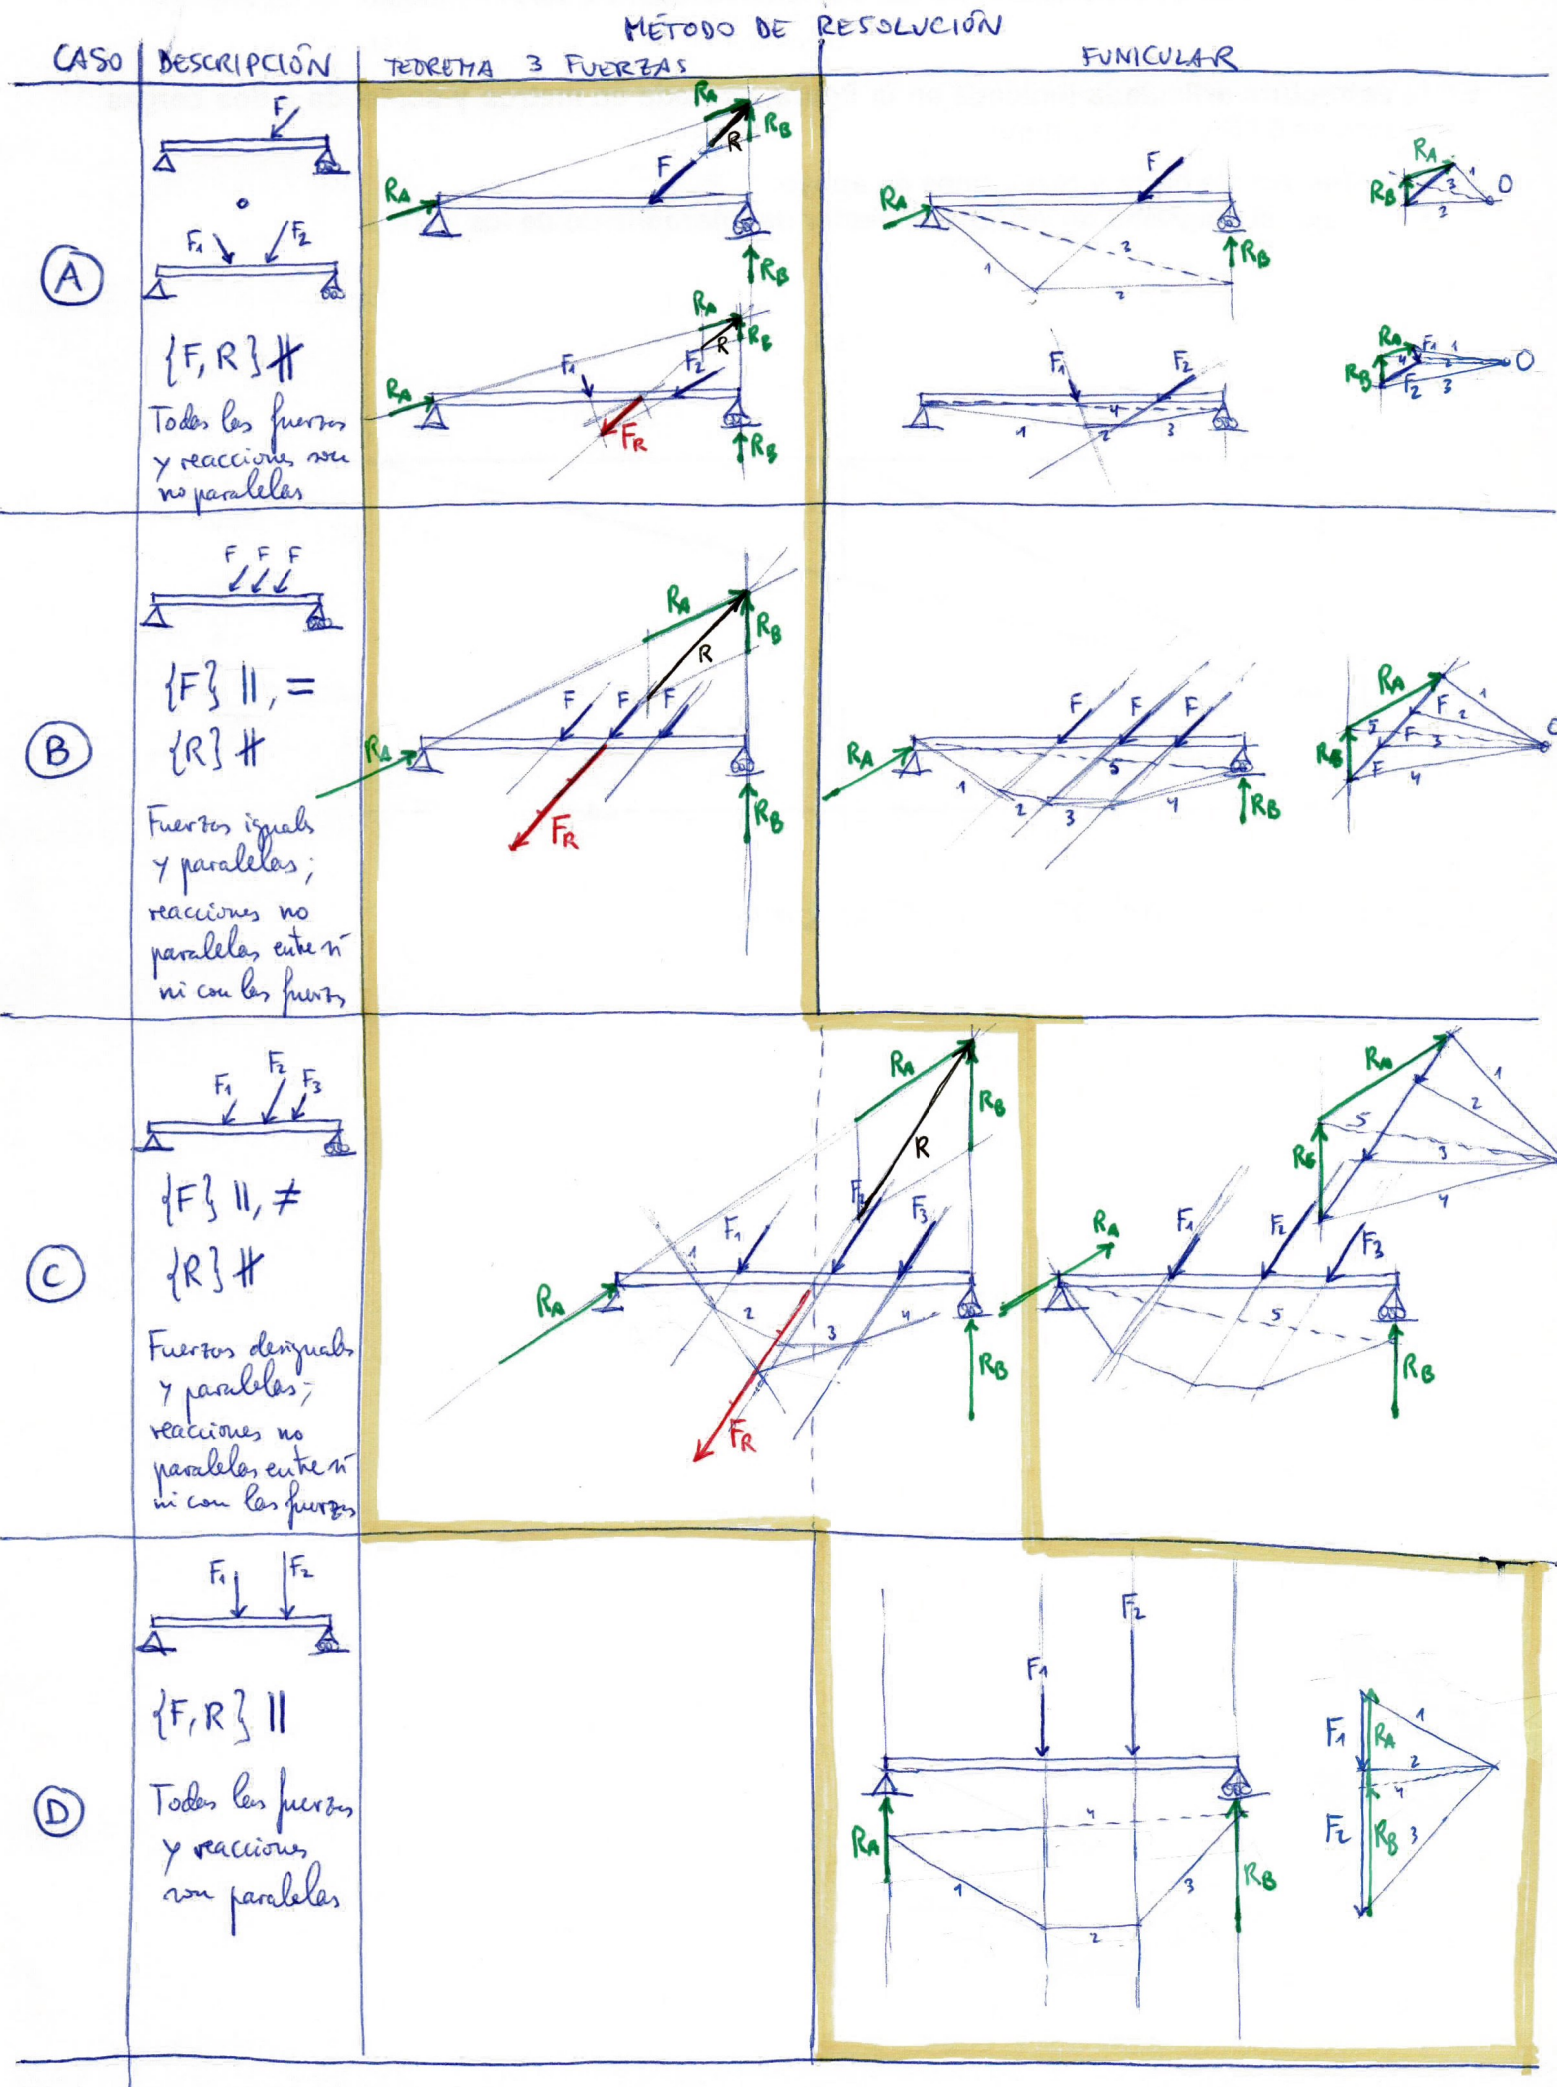 MÉTODO DE RESOLUCIÓN
CASO DESCRIPCIÓN TEOREMA 3 FUERZAS FUNICULAR
A
F
o
F₁ F₂
{F, R} ∦
Todas las fuerzas
y reacciones son
no paralelas
RA RB R F RA RB
RA RB R F₁ F₂ RA FR RB
F RA 1 2 3 RB
RA RB 1 2 3 O
F₁ F₂ 1 2 3 4
RA RB F₁ F₂ 1 2 3 4 O
B
F F F
{F} ||, =
{R} ∦
Fuerzas iguales
y paralelas;
reacciones no
paralelas entre sí
ni con las fuerzas
RA RB R F F F RA FR RB
F F F RA 1 2 3 4 5 RB
RA RB F F F 1 2 3 4 5 O
C
F₁ F₂ F₃
{F} ||, ≠
{R} ∦
Fuerzas desiguales
y paralelas;
reacciones no
paralelas entre sí
ni con las fuerzas
RA RB R F₁ F₂ F₃ RA 1 2 3 4 FR RB
RA F₁ F₂ F₃ 5 RB
RA RB 1 2 3 4 5
D
F₁ F₂
{F, R} ||
Todas las fuerzas
y reacciones
son paralelas
F₁ F₂ RA 1 2 3 4 RB
F₁ F₂ RA RB 1 2 3 4